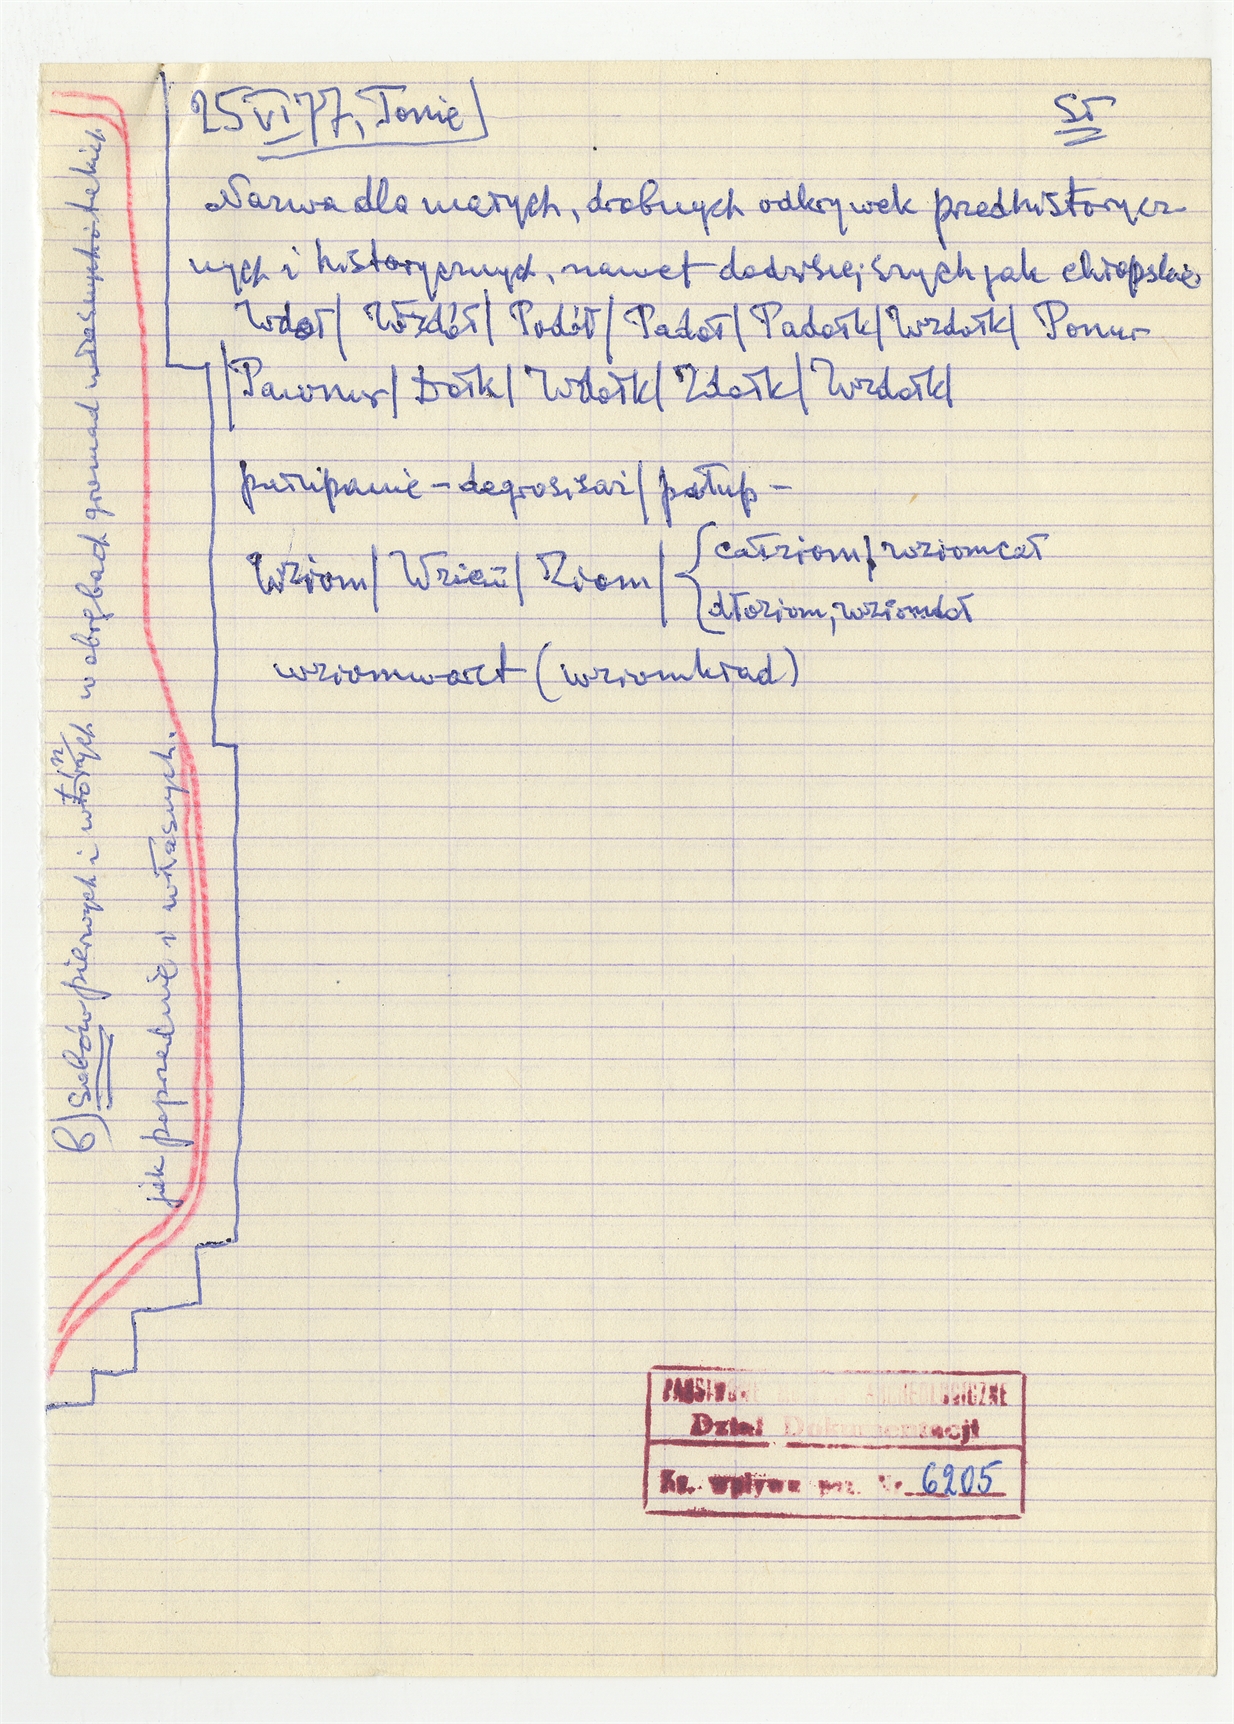 25 VI 77, Tonie
SŁ
Nazwa dla małych, drobnych odkrywek przedhistorycz-
nych i historycznych, nawet dodzisiejszych jak chłopskie
Wdoł / Wzdół / Podół / Padoł / Padołk / Wzdołk / Ponur
Paronur / Dołk / Wdołk / Zdołk / Wzdołk /
patupanie - degrosisaż / patup -
Wziom / Wzień / Ziom / całziom, wziomcał
dłoziom, wziomdoł
wziomwart (wziomkład)
B) Sobów pierwych i wtórnych w obrębach gromad własnych i takich
jak poprzednie i własnych.
PAŃSTWOWE ARCHEOLOGICZNE
Dział Dokumentacji
Ks. wpływu poz. Nr. 6205